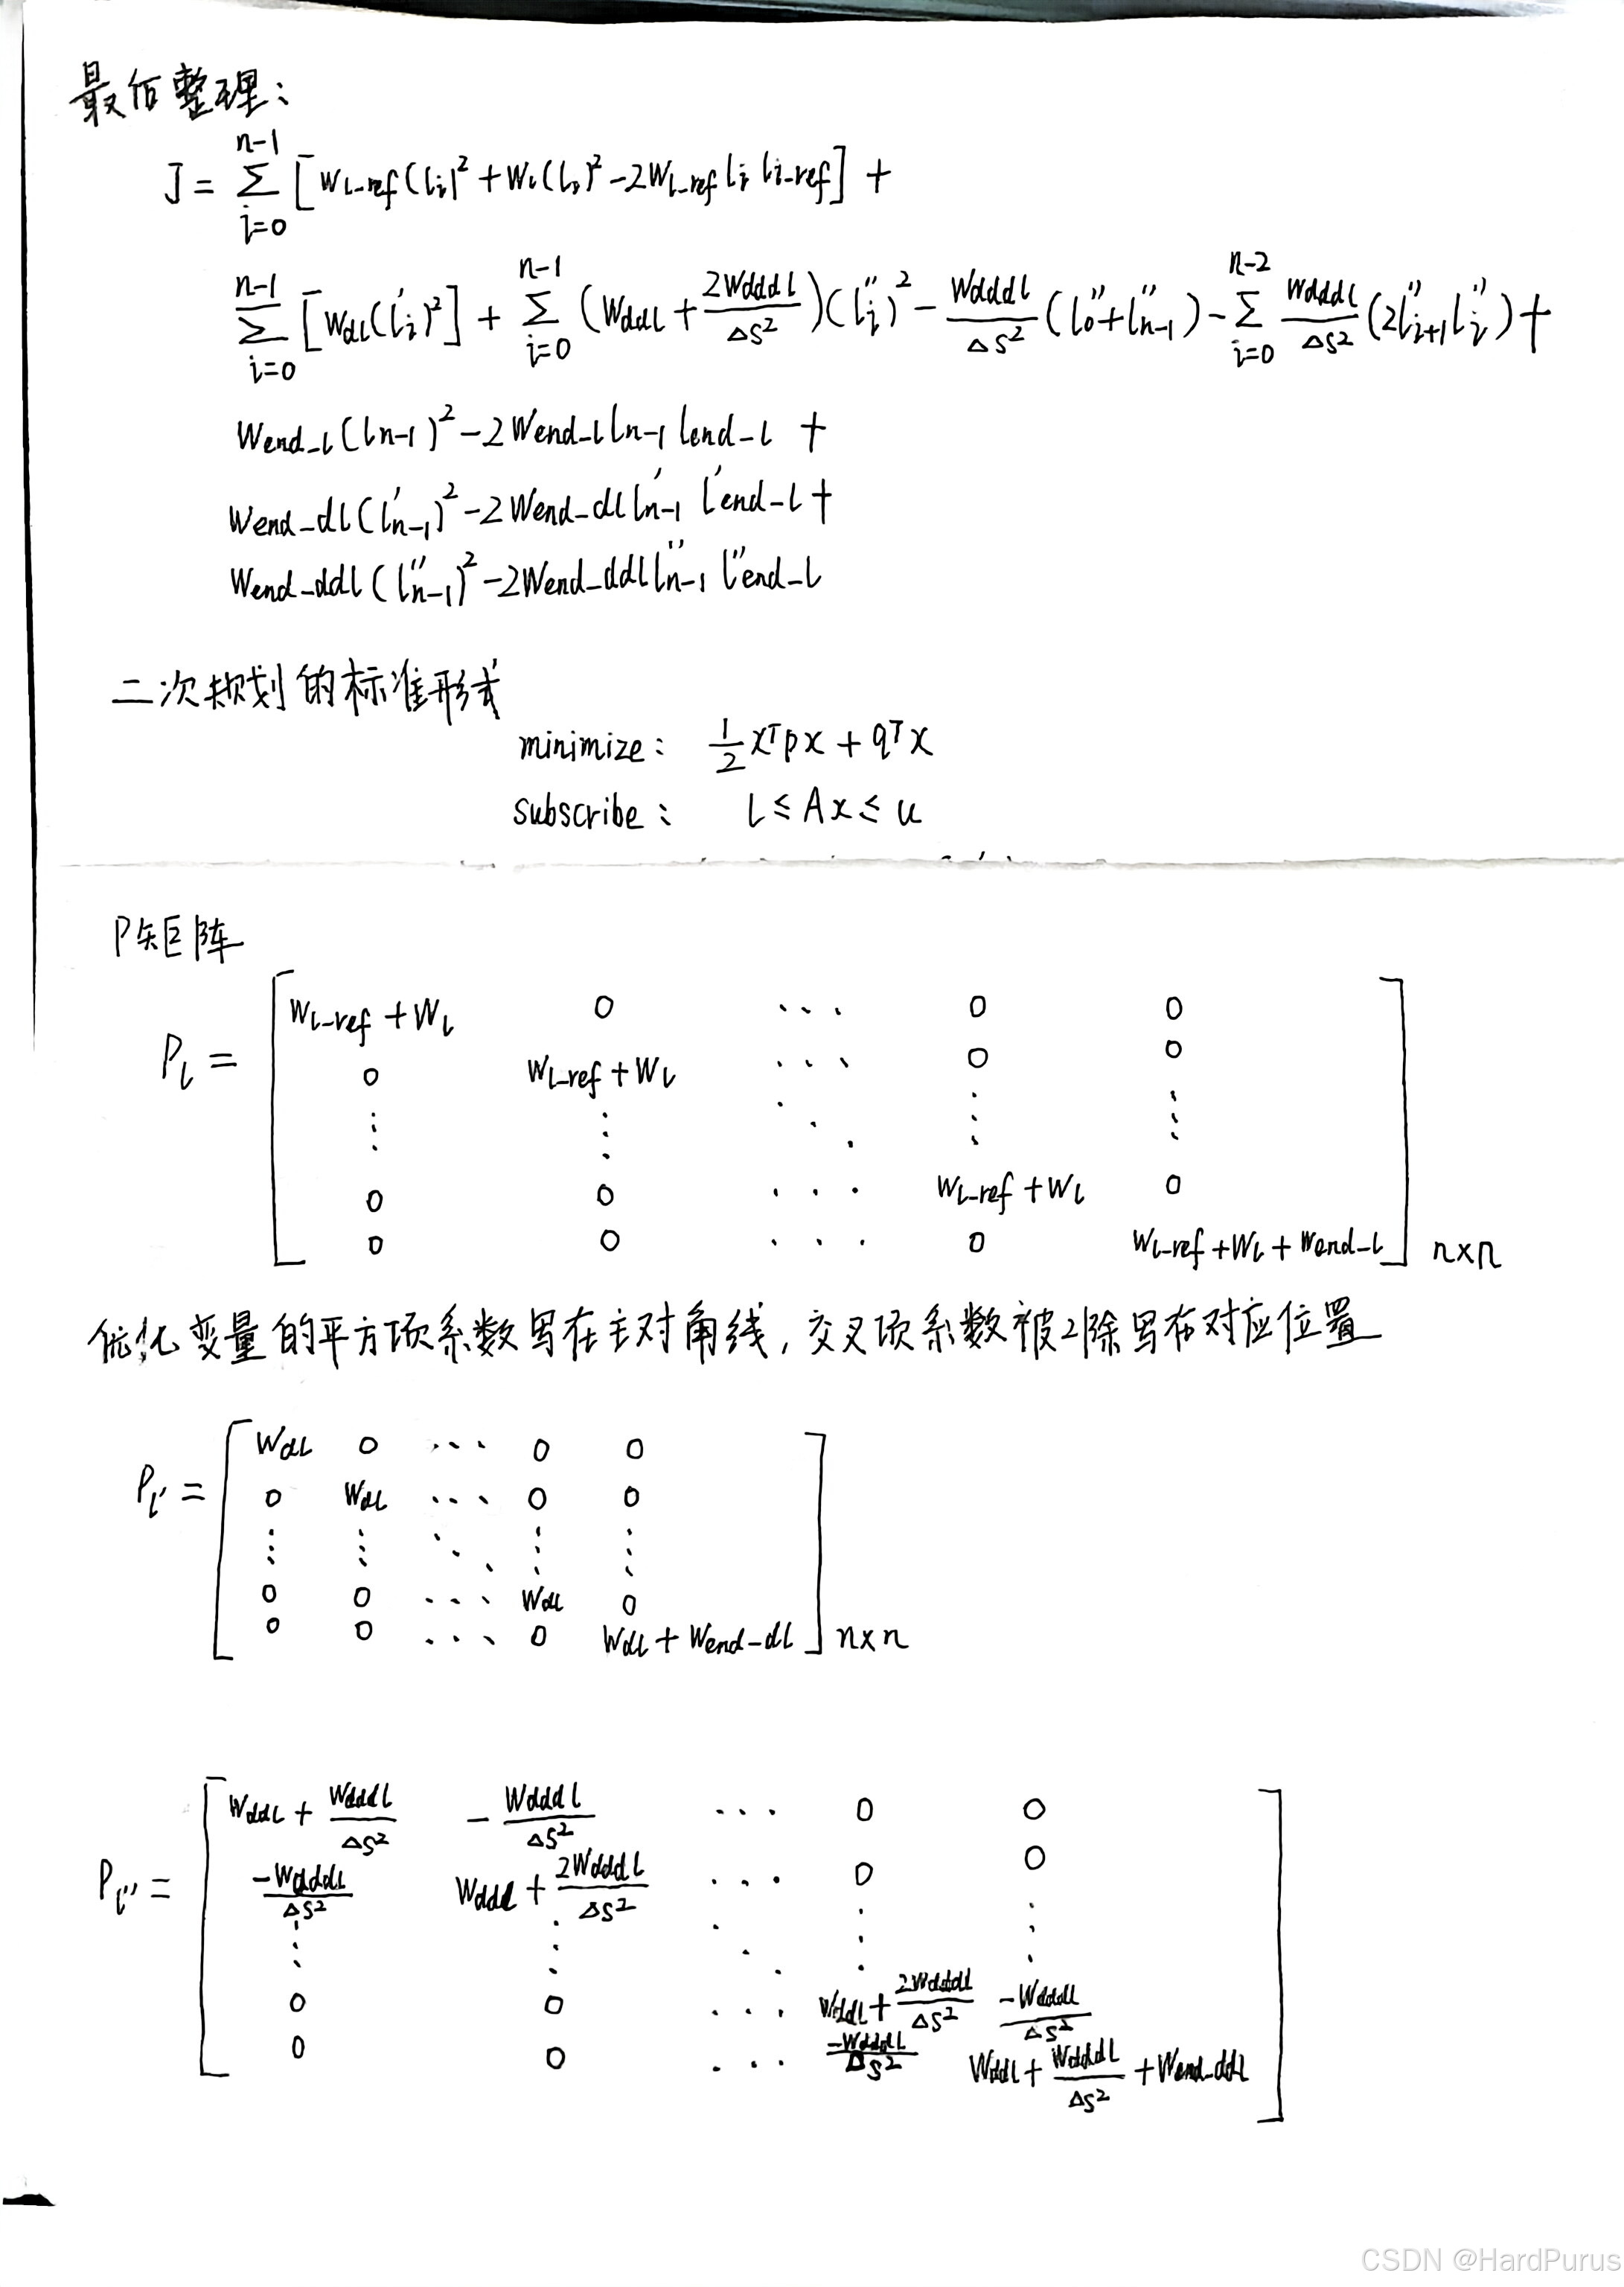 最后整理:
J = \sum_{i=0}^{n-1} [w_{l-ref}(l_i)^2 + w_l(l_i)^2 - 2w_{l-ref} l_i l_{i-ref}] +
\sum_{i=0}^{n-1} [w_{dl}(l'_i)^2] + \sum_{i=0}^{n-1} (w_{ddl} + \frac{2w_{dddl}}{\Delta s^2})(l''_i)^2 - \frac{w_{dddl}}{\Delta s^2}(l''_0 + l''_{n-1}) - \sum_{i=0}^{n-2} \frac{w_{dddl}}{\Delta s^2}(2l''_{i+1} l''_i) +
w_{end-l}(l_{n-1})^2 - 2w_{end-l} l_{n-1} l_{end-l} +
w_{end-dl}(l'_{n-1})^2 - 2w_{end-dl} l'_{n-1} l'_{end-l} +
w_{end-ddl}(l''_{n-1})^2 - 2w_{end-ddl} l''_{n-1} l''_{end-l}
二次规划的标准形式
minimize: \frac{1}{2} x^T p x + q^T x
subscribe: l ≤ Ax ≤ u
P矩阵
w_{l-ref} + w_l 0 ... 0 0
P_l = 0 w_{l-ref} + w_l ... 0 0
⋮ ⋮ ⋱ ⋮ ⋮
0 0 ... w_{l-ref} + w_l 0
0 0 ... 0 w_{l-ref} + w_l + w_{end-l} n×n
优化变量的平方项系数写在主对角线,交叉项系数被2除写在对应位置
w_{dl} 0 ... 0 0
P_{l'} = 0 w_{dl} ... 0 0
⋮ ⋮ ⋱ ⋮ ⋮
0 0 ... w_{dl} 0
0 0 ... 0 w_{dl} + w_{end-dl} n×n
w_{ddl} + \frac{w_{dddl}}{\Delta s^2} -\frac{w_{dddl}}{\Delta s^2} ... 0 0
P_{l''} = \frac{-w_{dddl}}{\Delta s^2} w_{ddl} + \frac{2w_{dddl}}{\Delta s^2} ... 0 0
⋮ ⋮ ⋱ ⋮ ⋮
0 0 ... w_{ddl} + \frac{2w_{dddl}}{\Delta s^2} \frac{-w_{dddl}}{\Delta s^2}
0 0 ... \frac{-w_{dddl}}{\Delta s^2} w_{ddl} + \frac{w_{dddl}}{\Delta s^2} + w_{end-ddl}
CSDN @HardPurus